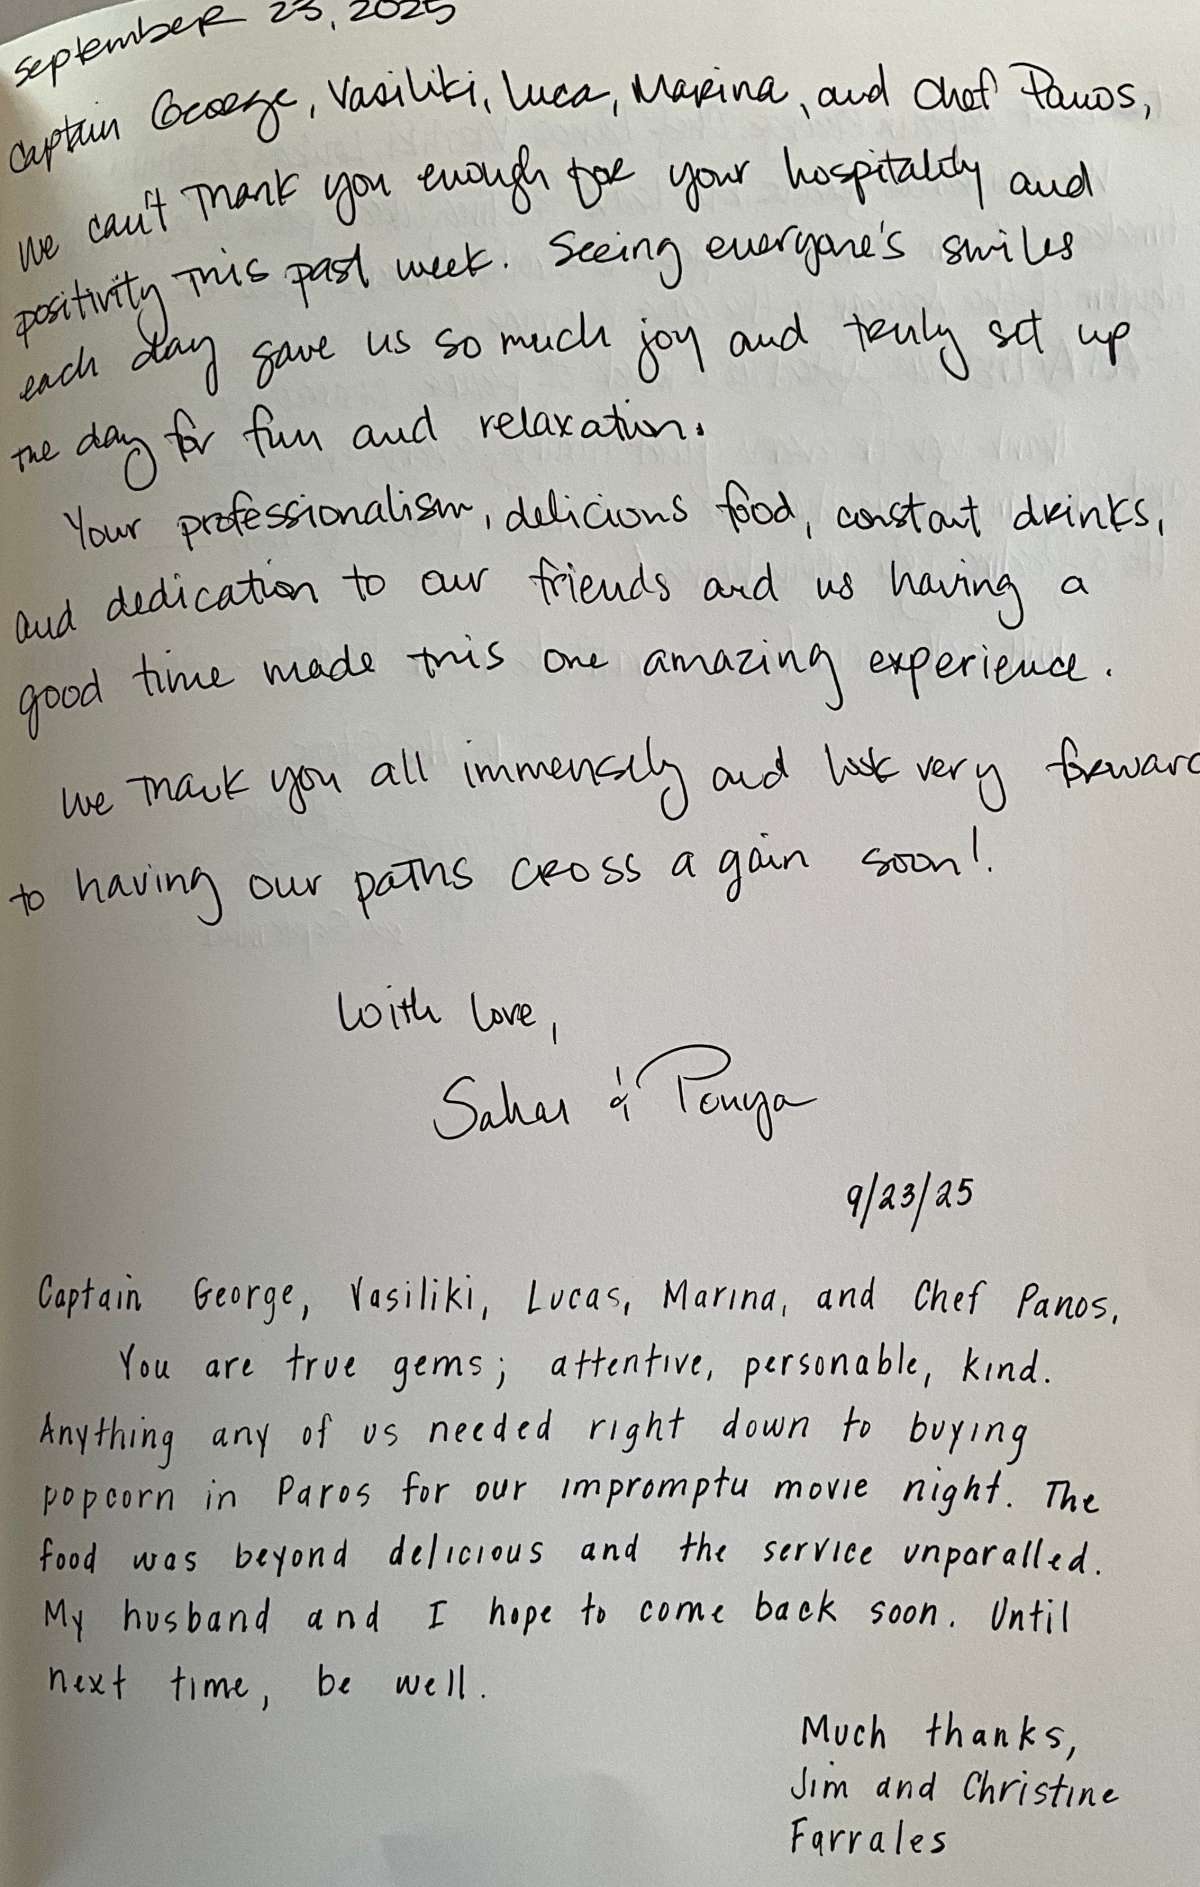 September 23, 2025
Captain George, Vasiliki, Luca, Marina, and Chef Panos,
We can't thank you enough for your hospitality and
positivity this past week. Seeing everyone's smiles
each day gave us so much joy and truly set up
the day for fun and relaxation.
Your professionalism, delicious food, constant drinks,
and dedication to our friends and us having a
good time made this one amazing experience.
We thank you all immensely and look very forward
to having our paths cross again soon!
With love,
Sahar & Pouya
9/23/25
Captain George, Vasiliki, Lucas, Marina, and Chef Panos,
You are true gems; attentive, personable, kind.
Anything any of us needed right down to buying
popcorn in Paros for our impromptu movie night. The
food was beyond delicious and the service unparalled.
My husband and I hope to come back soon. Until
next time, be well.
Much thanks,
Jim and Christine
Farrales